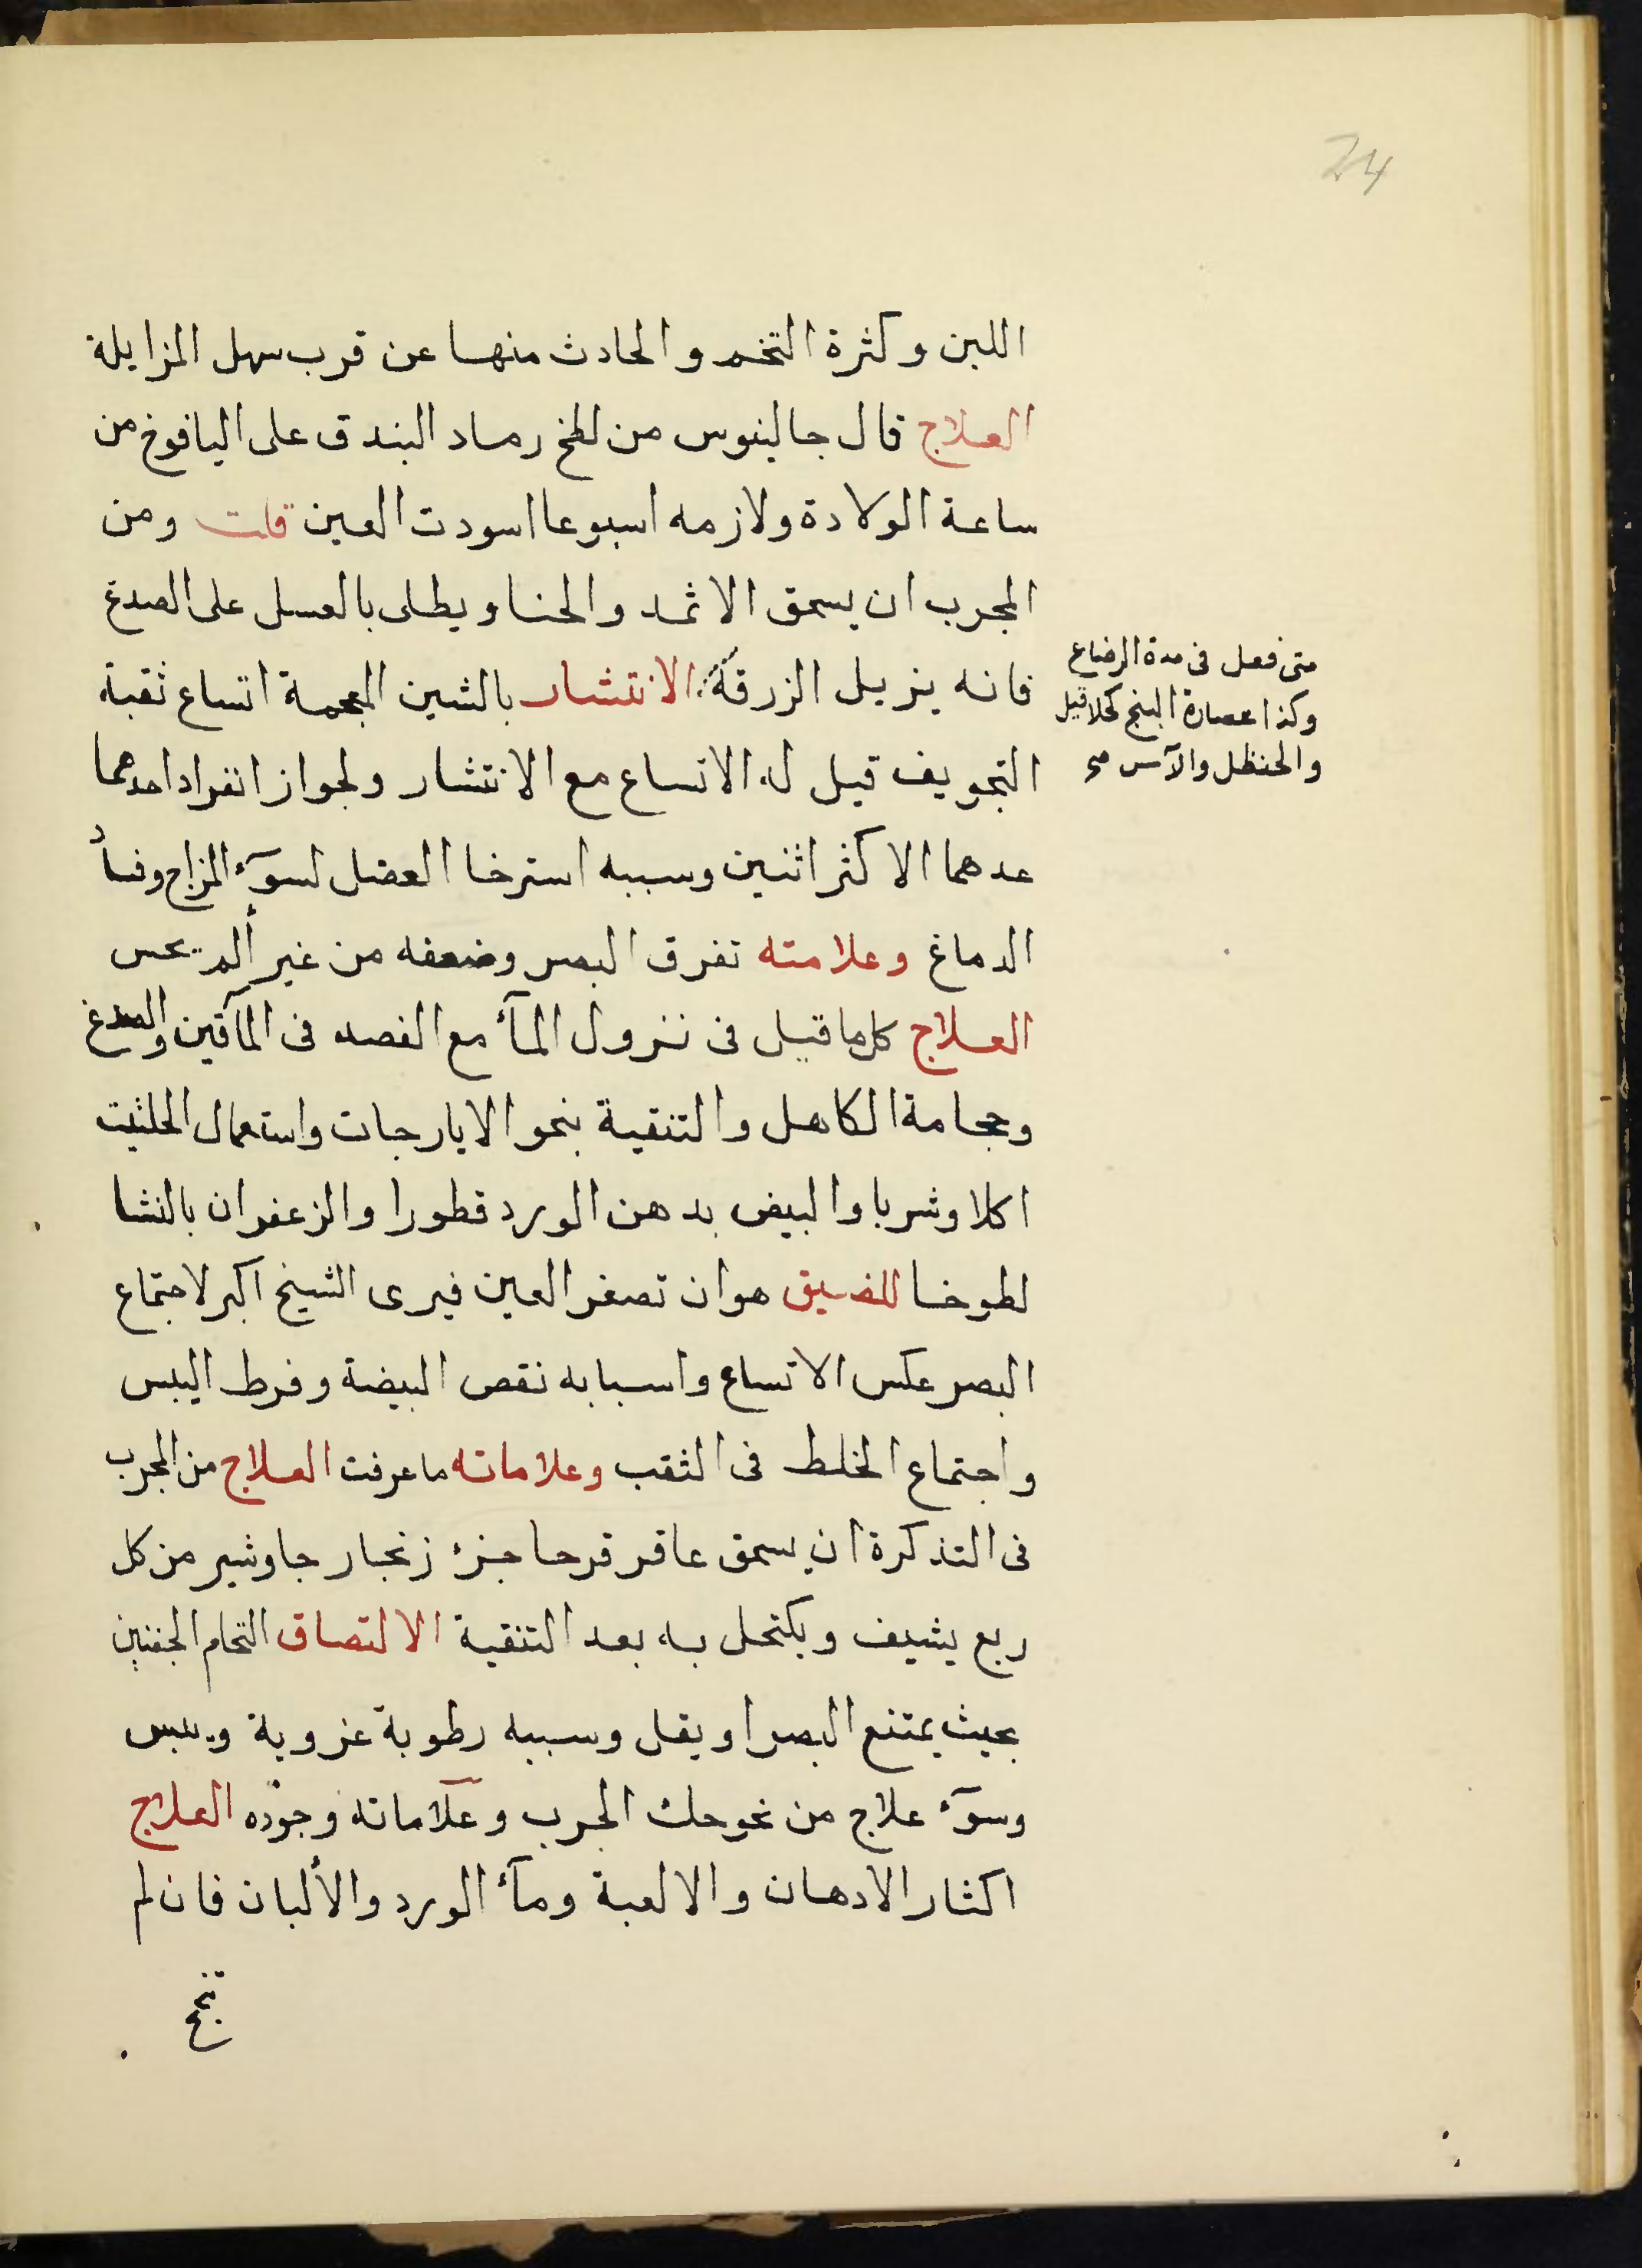 24
اللبن وكثرة التخم والحادث منها عن قرب سهل المزايلة
العلاج قال جالينوس من لطخ رماد البندق على اليافوخ من
ساعة الولادة ولازمه اسبوعا اسودت العين قلت ومن
المجرب ان يسحق الاثمد والحنا ويطلى بالعسل على الصدغ
فانه يزيل الزرقة الانتشار بالشين المعجمة اتساع ثقبة
متى فعل فى مدة الرضاع
وكذا عصارة البنج كحلا قيل
والحنظل والآس صح
التجويف قيل له الاتساع مع الانتشار ولجواز انفراد احدهما
عدهما الاكثر اثنين وسببه استرخا العضل لسوء المزاج وفساد
الدماغ وعلامته تفرق البصر وضعفه من غير ألم يحس
العلاج كل ما قيل فى نزول المآء مع الفصد فى المآقين والصدغ
وحجامة الكاهل والتنقية بنحو الايارجات واستعمال الحلثيت
اكلا وشربا والبيض بدهن الورد قطورا والزعفران بالنشا
لطوخا الضيق هو ان تصغر العين فيرى الشيخ اكبر لاجتماع
البصر عكس الاتساع واسبابه نقص البيضة وفرط اليبس
واجتماع الخلط فى الثقب وعلاماته ما عرفت العلاج من المجرب
فى التذكرة ان يسحق عاقر قرحا جزء زنجار جاوشير من كل
ربع يشيف ويكتحل به بعد التنقية الالتصاق التحام الجفنين
بحيث يمتنع البصر او يقل وسببه رطوبة غروية ويبس
وسوء علاج من نحو حك الجرب وعلاماته وجوده العلاج
اكثار الادهان والالعبة ومآء الورد والألبان فان لم
تنجح